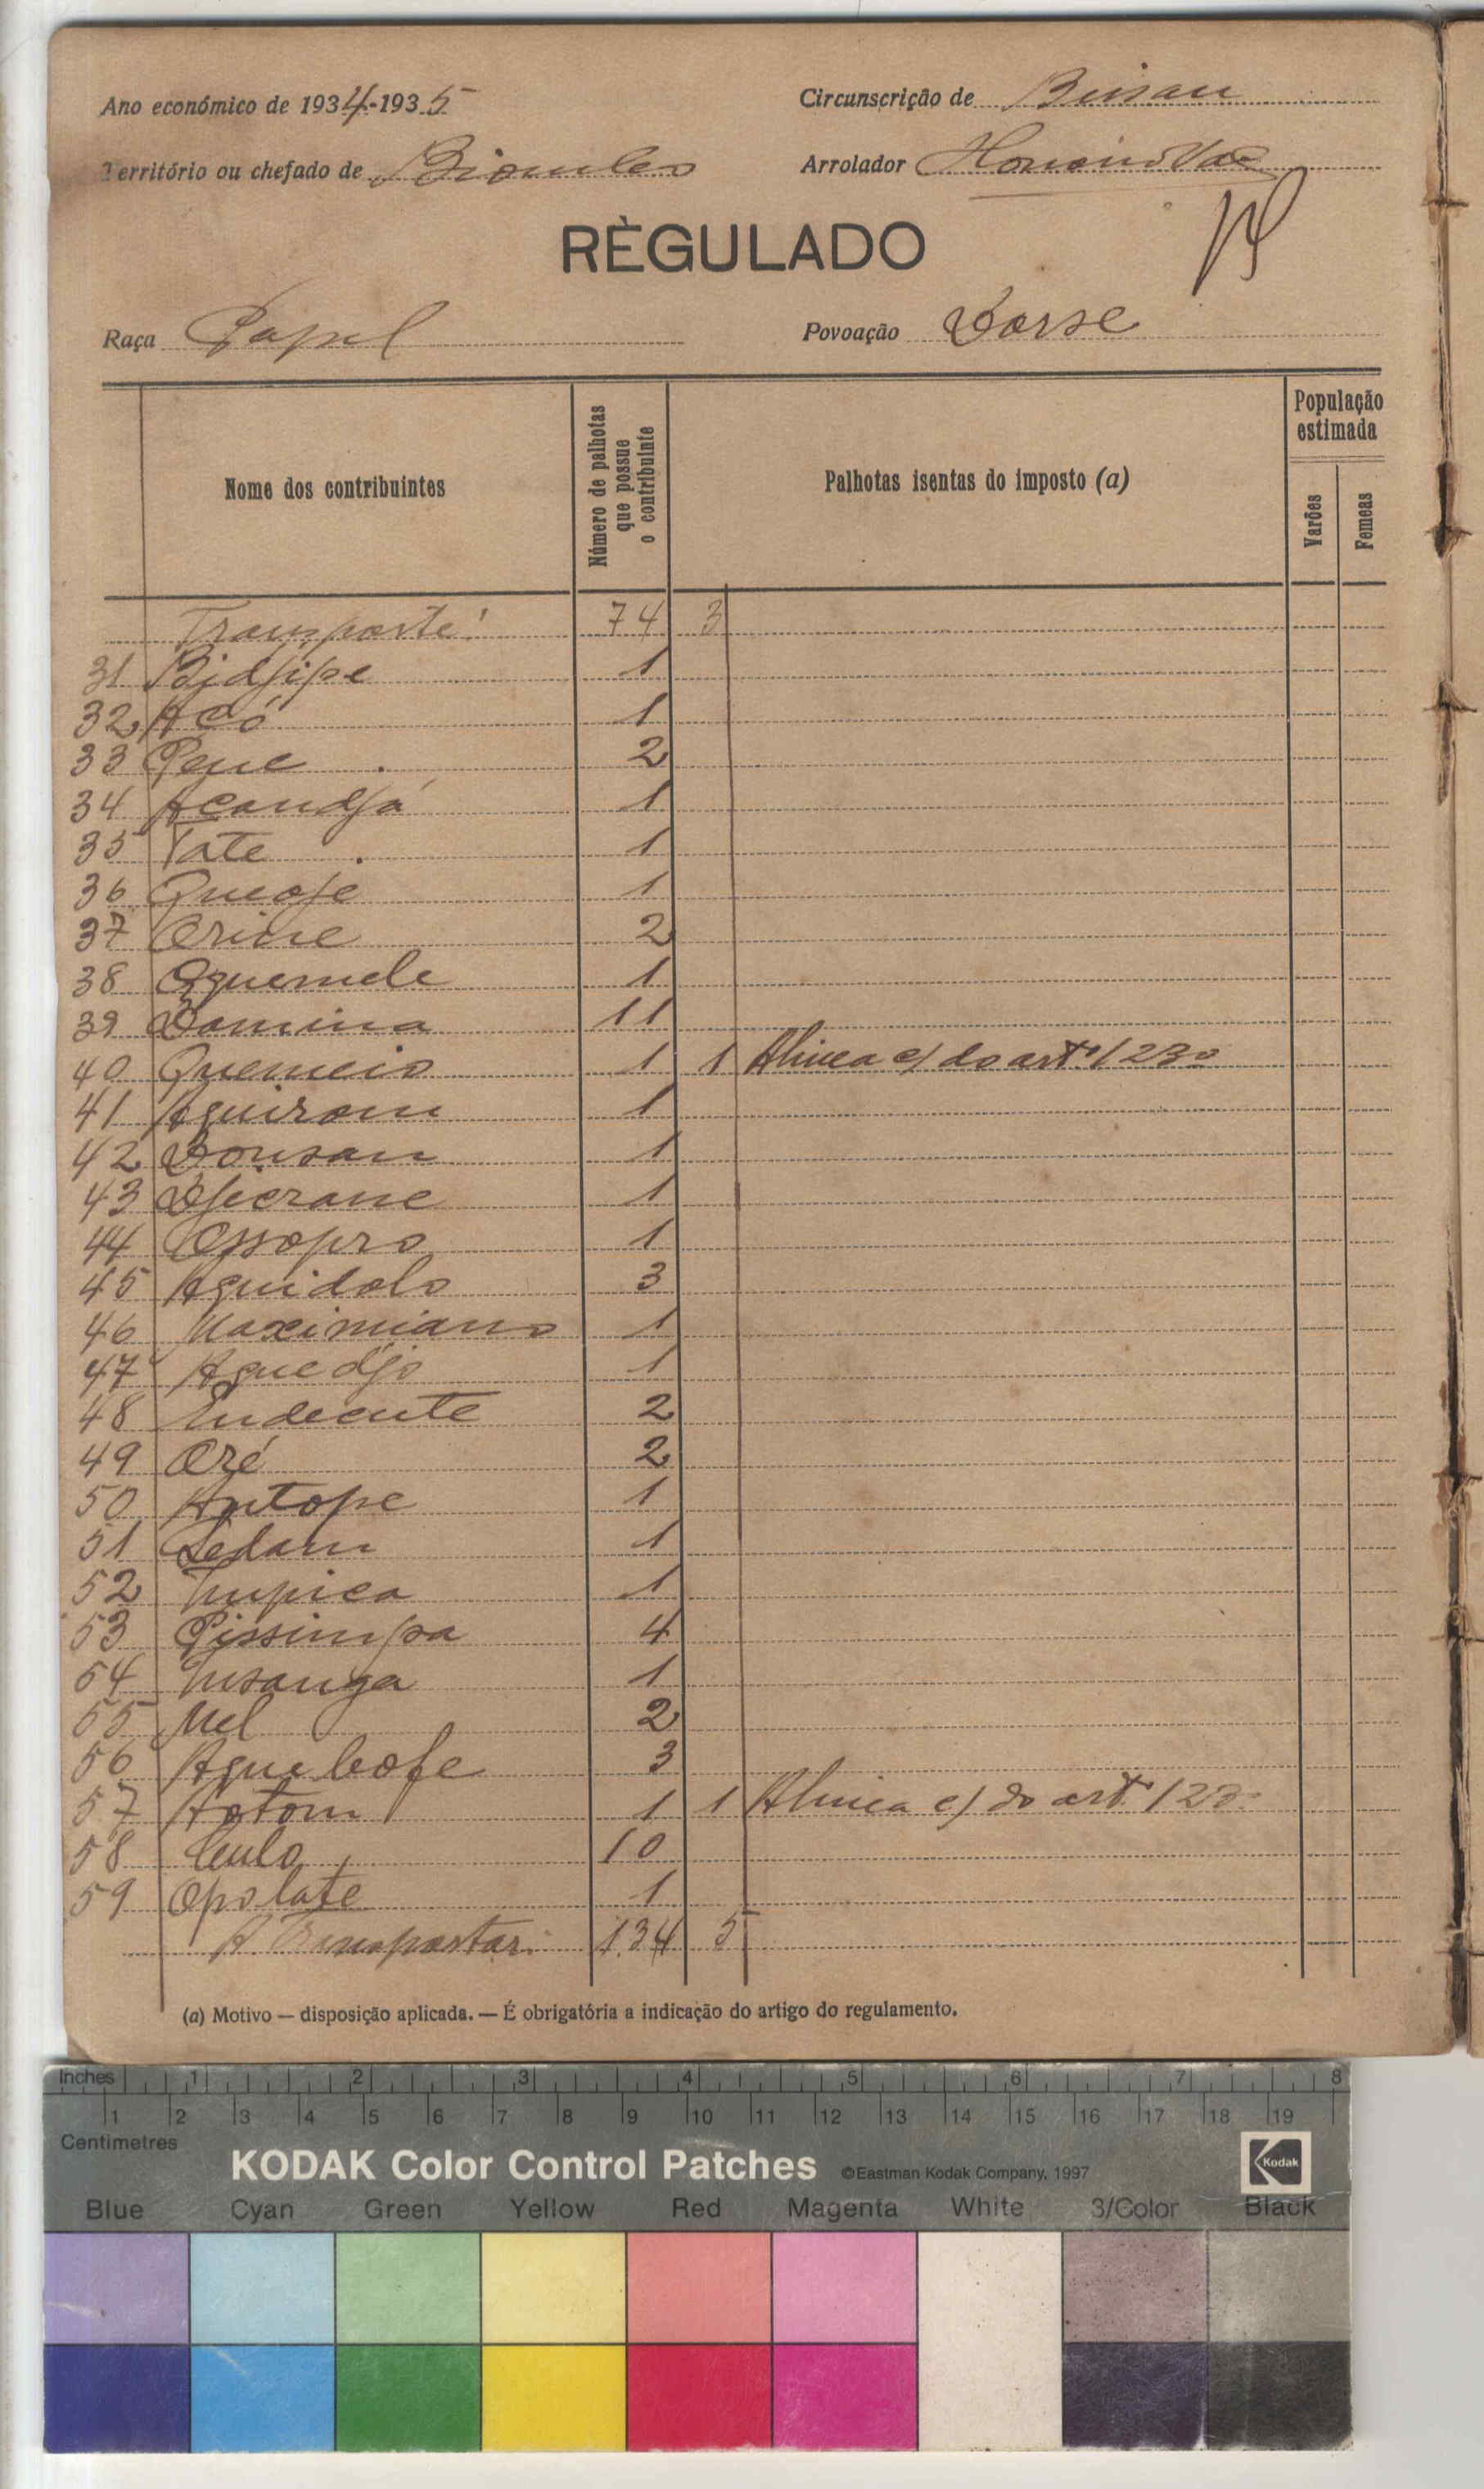 Ano económico de 1934-1935
Circunscrição de Bissau
Território ou chefado de Biombo
Arrolador Honorio Vaz
RÈGULADO
Raça Papel
Povoação Dorse
Nome dos contribuintes
Número de palhotas que possue o contribuinte
Palhotas isentas do imposto (a)
População estimada
Varões
Femeas
Transporte: 74 3
31 Bidjipe 1
32 Acó 1
33 Pene 2
34 Acandjá 1
35 Tate 1
36 Queofe 1
37 Orine 2
38 Oquemele 1
39 Domina 11
40 Quemeio 1 1 Alinea c) do art.º 123º
41 Aquirom 1
42 Donsau 1
43 Djicrane 1
44 Ossopro 1
45 Aquidolo 3
46 Maximiano 1
47 Aquedjo 1
48 Endecute 2
49 Oré 2
50 Antope 1
51 Ledam 1
52 Inpica 1
53 Pissimpa 4
54 Insanga 1
55 Mel 2
56 Aquebofe 3
57 Aotom 1 1 Alinea c) do art.º 123º
58 Culo 10
59 Opolate 1
A Transportar: 134 5
(a) Motivo — disposição aplicada. — É obrigatória a indicação do artigo do regulamento.
Inches 1 2 3 4 5 6 7 8
1 2 3 4 5 6 7 8 9 10 11 12 13 14 15 16 17 18 19
Centimetres
KODAK Color Control Patches ©Eastman Kodak Company, 1997 Kodak
Blue Cyan Green Yellow Red Magenta White 3/Color Black